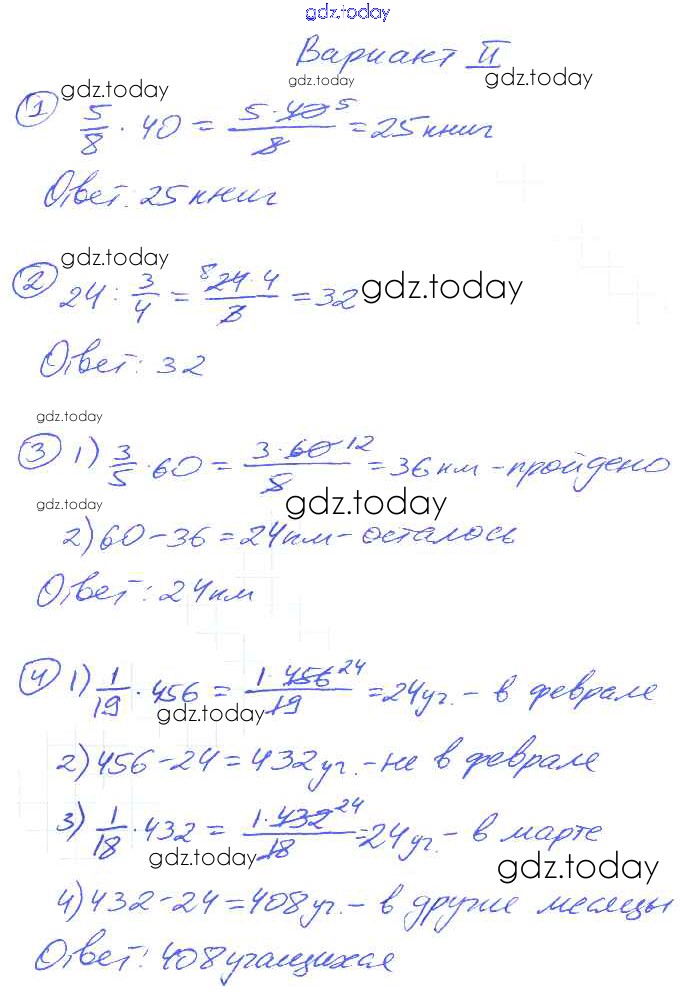 gdz.today
Вариант II
gdz.today gdz.today
① 5/8 · 40 = 5·40 5/8 = 25 книг
Ответ: 25 книг
gdz.today
② 24 : 3/4 = 8 24·4/3 = 32 gdz.today
Ответ: 32
gdz.today
③ 1) 3/5 · 60 = 3·60 12/5 = 36 км - пройдено
gdz.today gdz.today
2) 60 - 36 = 24 км - осталось
Ответ: 24 км
④ 1) 1/19 · 456 = 1·456 24/19 = 24 уч. - в феврале
gdz.today
2) 456 - 24 = 432 уч. - не в феврале
3) 1/18 · 432 = 1·432 24/18 = 24 уч. - в марте
gdz.today gdz.today
4) 432 - 24 = 408 уч. - в другие месяцы
Ответ: 408 учащихся